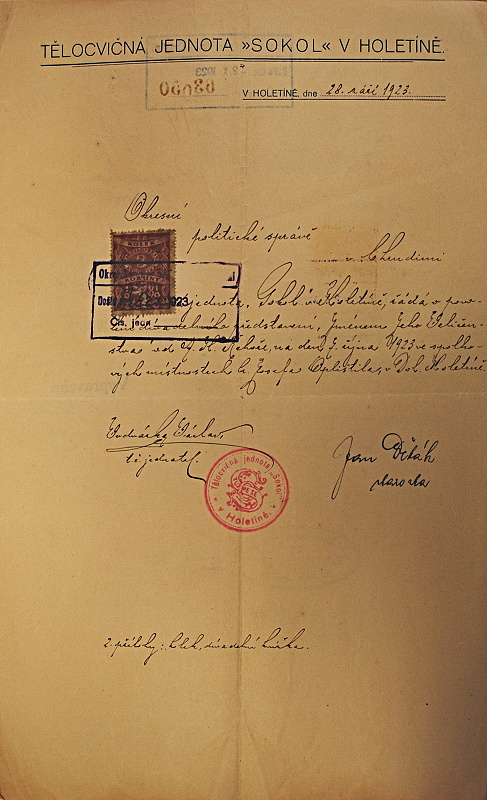 TĚLOCVIČNÁ JEDNOTA »SOKOL« V HOLETÍNĚ.
V HOLETÍNĚ, dne 28. září 1923.
Okresní
politické správě
v Chrudimi
KOLEK
Okr
Došlo 1923
Čís. jedn
jednota „Sokol" v Holetíně, žádá o povo-
divadelního představení, Jménem Jeho Veličen-
stva od na den 7. října 1923 ve spolko-
vých místnostech p. Josefa v Dol. Holetíně.
Václav
t. č. jednatel.
Jan
starosta
Tělocvičná jednota „Sokol"
v Holetíně.
2 přílohy: kolek, divadelní knížka.